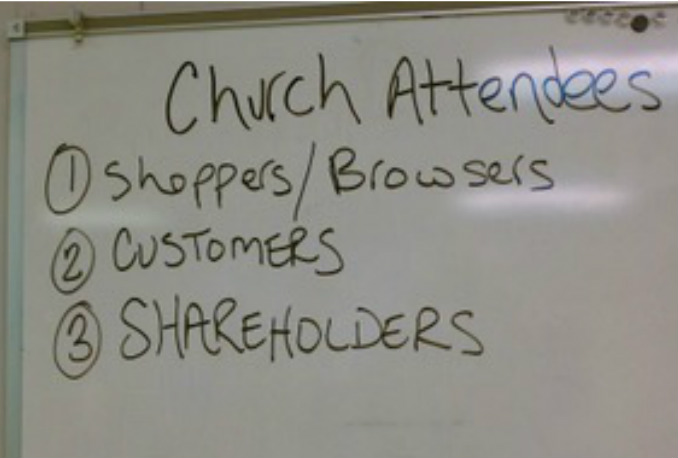 Church Attendees
① Shoppers/Browsers
② CUSTOMERS
③ SHAREHOLDERS